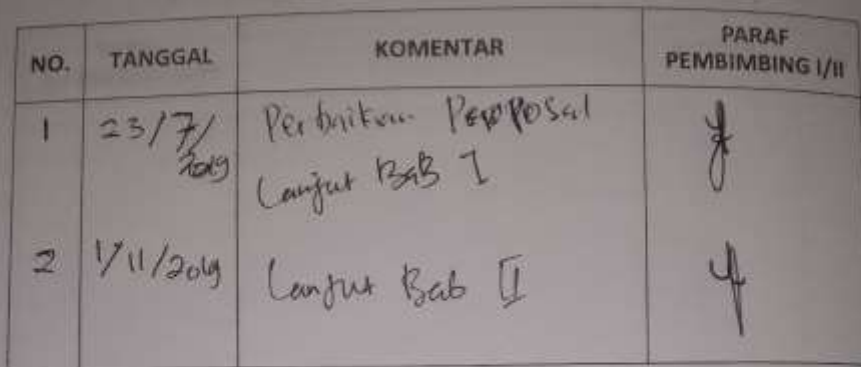 NO. TANGGAL KOMENTAR PARAF PEMBIMBING I/II
1 23/7/2019 Perbaikan Peroposal
Lanjut BaB I
2 1/11/2019 Lanjut Bab II